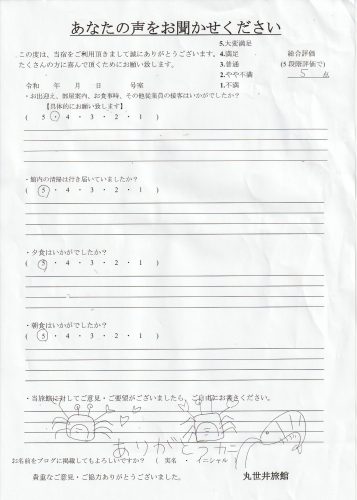 あなたの声をお聞かせください
5.大変満足
この度は、当宿をご利用頂きまして誠にありがとうございます。 4.満足 総合評価
たくさんの方に喜んで頂くためにお願い致します。 3.普通 (5段階評価で)
2.やや不満 5 点
令和 年 月 日 号室 1.不満
・お出迎え、部屋案内、お食事時、その他従業員の接客はいかがでしたか?
【具体的にお願い致します】
( 5 ・ 4 ・ 3 ・ 2 ・ 1 )
・館内の清掃は行き届いていましたか?
( 5 ・ 4 ・ 3 ・ 2 ・ 1 )
・夕食はいかがでしたか?
( 5 ・ 4 ・ 3 ・ 2 ・ 1 )
・朝食はいかがでしたか?
( 5 ・ 4 ・ 3 ・ 2 ・ 1 )
・当旅館に対してご意見・ご要望がございましたら、ご自由にお書きください。
ありがとうカニ
お名前をブログに掲載してもよろしいですか? ( 実名 ・ イニシャル
貴重なご意見・ご協力ありがとうございました。 丸世井旅館